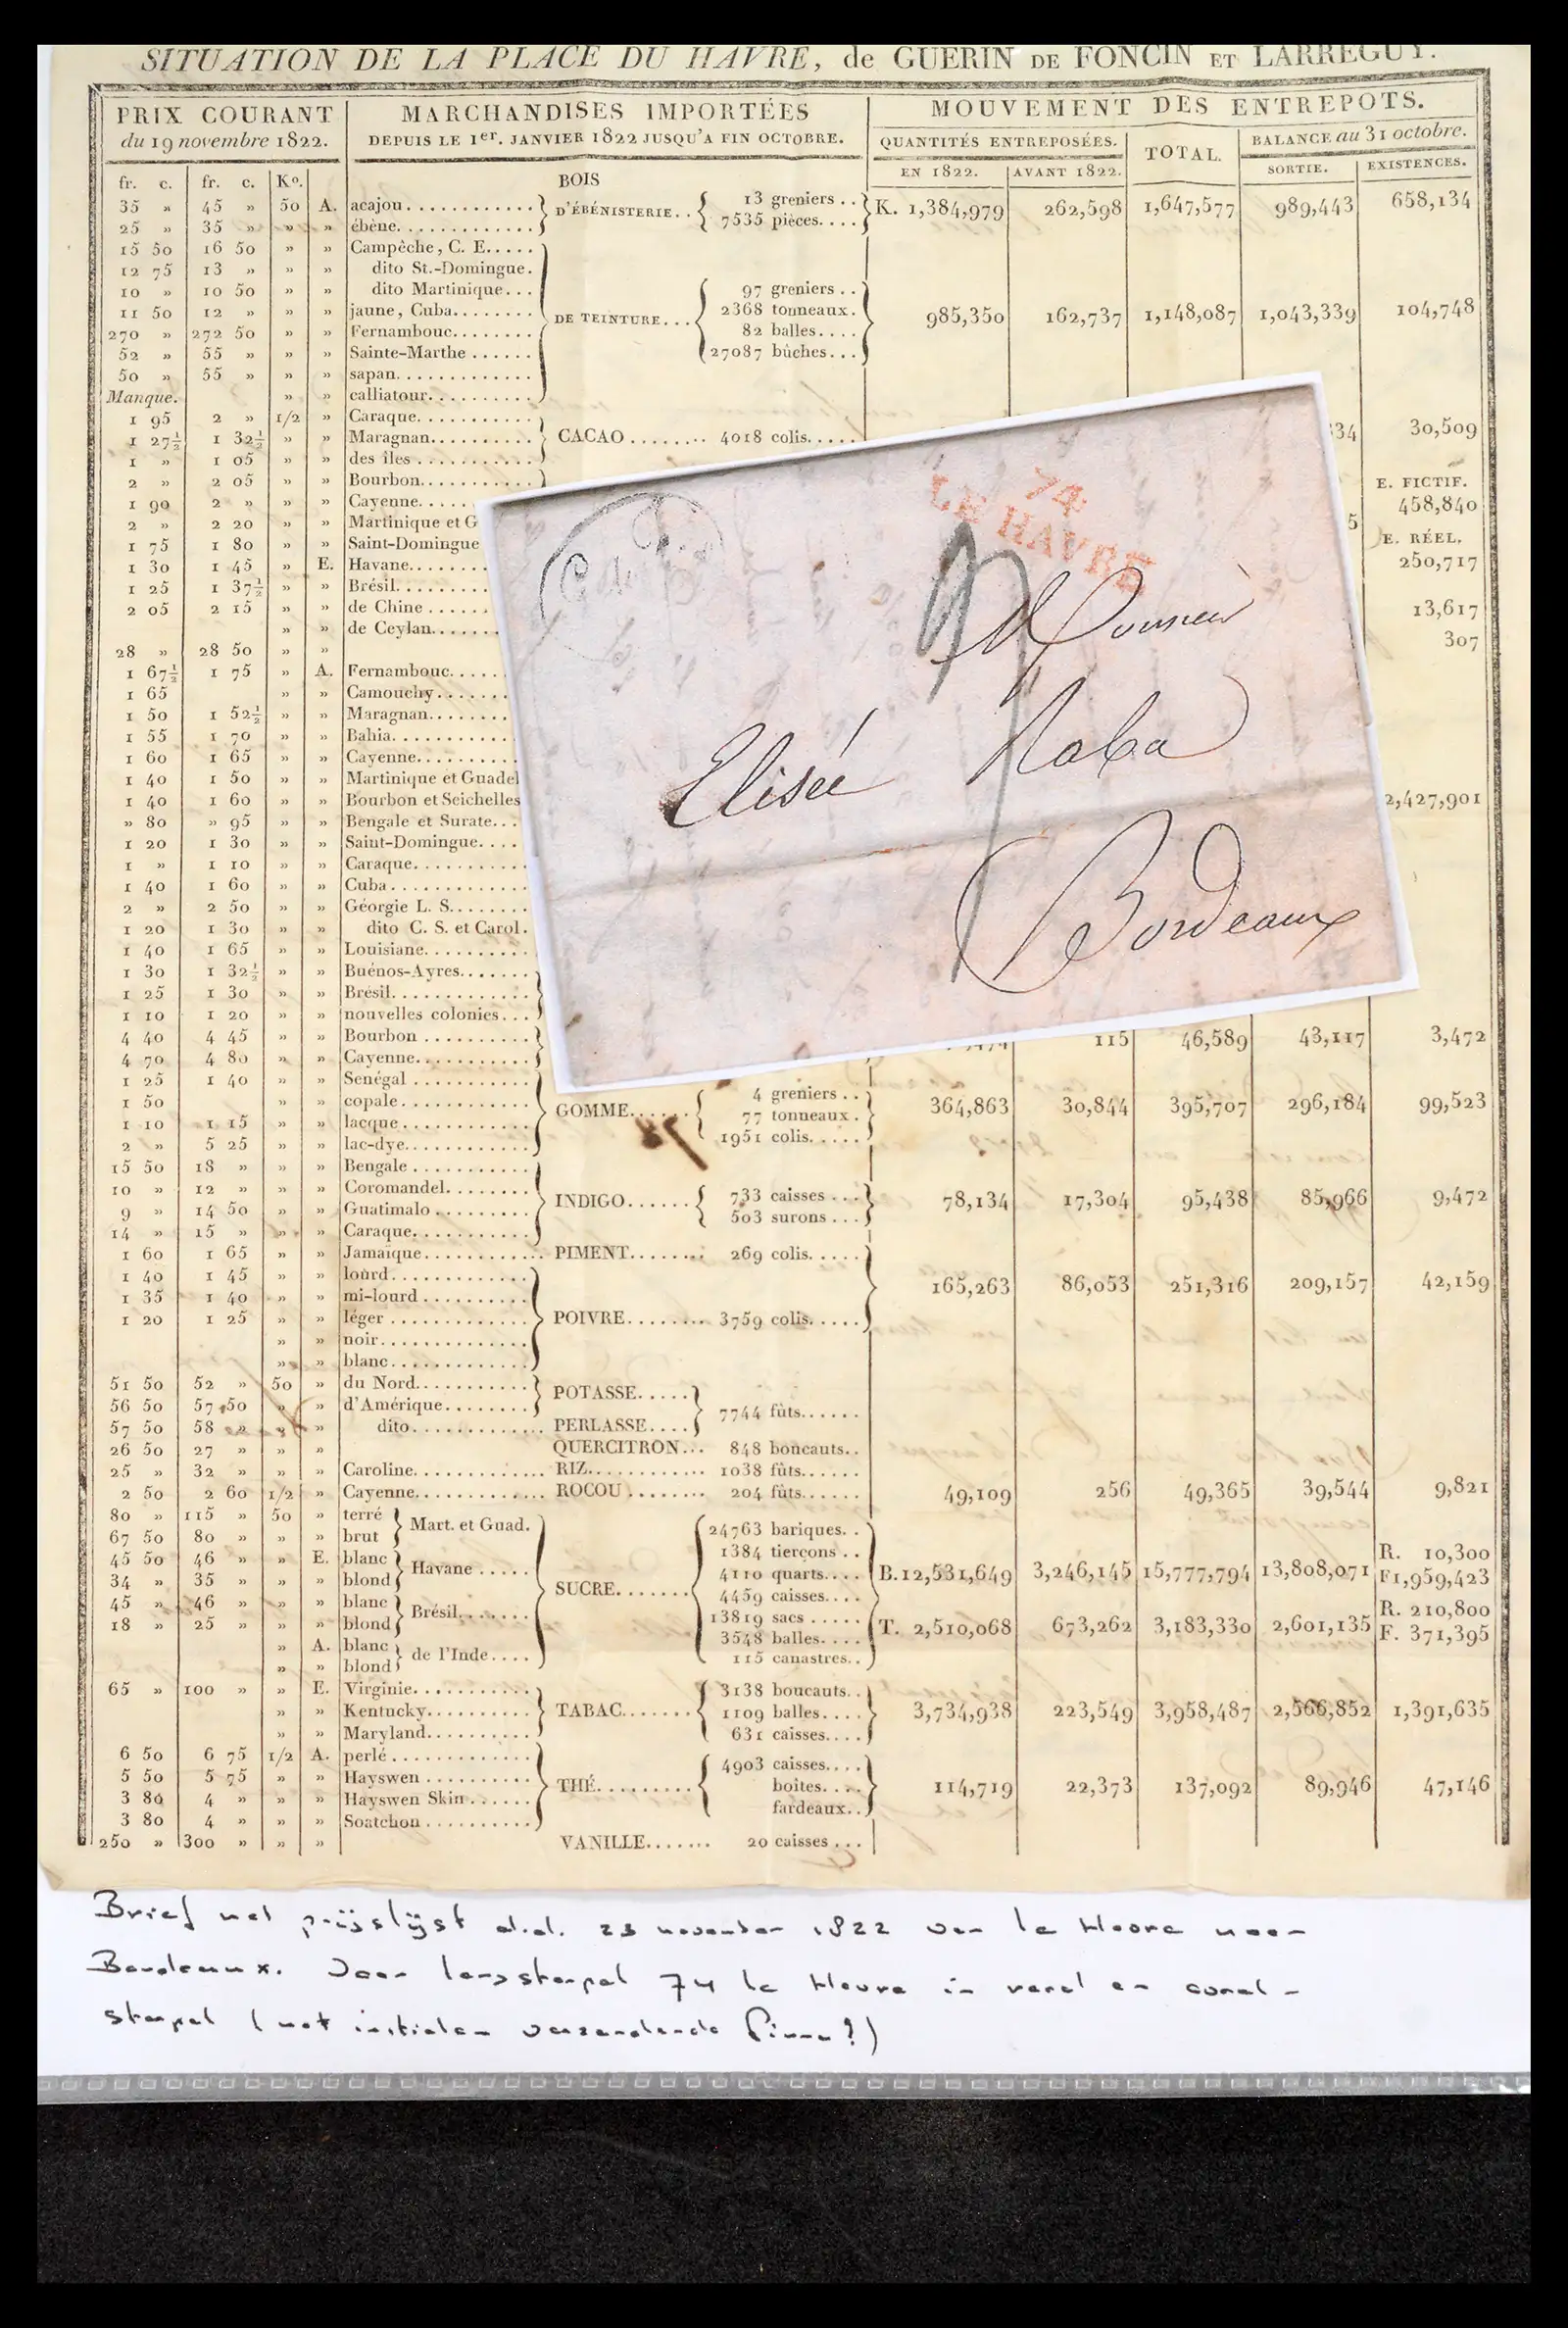 SITUATION DE LA PLACE DU HAVRE, de GUERIN DE FONCIN ET LARREGUY.
PRIX COURANT
du 19 novembre 1822.
MARCHANDISES IMPORTÉES
DEPUIS LE 1er. JANVIER 1822 JUSQU'A FIN OCTOBRE.
MOUVEMENT DES ENTREPOTS.
QUANTITÉS ENTREPOSÉES.
EN 1822. AVANT 1822.
TOTAL.
BALANCE au 31 octobre.
SORTIE. EXISTENCES.
fr. c. fr. c. Ko. BOIS
35 » 45 » 50 A. acajou............ D'ÉBÉNISTERIE.. 13 greniers .. K. 1,384,979 262,598 1,647,577 989,443 658,134
25 » 35 » » » ébène............ 7535 pièces....
15 50 16 50 » » Campêche, C. E.....
12 75 13 » » » dito St.-Domingue.
10 » 10 50 » » dito Martinique... 97 greniers ..
11 50 12 » » » jaune, Cuba........ DE TEINTURE... 2368 tonneaux. 985,350 162,737 1,148,087 1,043,339 104,748
270 » 272 50 » » Fernambouc........ 82 balles....
52 » 55 » » » Sainte-Marthe ...... 27087 bûches...
50 » 55 » » » sapan.............
Manque. » » calliatour..........
1 95 2 » 1/2 » Caraque...........
1 27½ 1 32½ » » Maragnan.......... CACAO........ 4018 colis..... 334 30,509
1 » 1 05 » » des îles ...........
2 » 2 05 » » Bourbon........... E. FICTIF.
1 90 2 » » » Cayenne..... 458,840
2 » 2 20 » » Martinique et G 5 E. RÉEL.
1 75 1 80 » » Saint-Domingue
1 30 1 45 » E. Havane........ 250,717
1 25 1 37½ » » Brésil.........
2 05 2 15 » » de Chine ...... 13,617
» » de Ceylan....... 307
28 » 28 50 » »
1 67½ 1 75 » A. Fernambouc.....
1 65 » » Camouchy.......
1 50 1 52½ » » Maragnan........
1 55 1 70 » » Bahia...........
1 60 1 65 » » Cayenne.........
1 40 1 50 » » Martinique et Guadel
1 40 1 60 » » Bourbon et Seichelles 2,427,901
» 80 » 95 » » Bengale et Surate...
1 20 1 30 » » Saint-Domingue....
1 » 1 10 » » Caraque...........
1 40 1 60 » » Cuba.............
2 » 2 50 » » Géorgie L. S........
1 20 1 30 » » dito C. S. et Carol.
1 40 1 65 » » Louisiane..........
1 30 1 32½ » » Buénos-Ayres.......
1 25 1 30 » » Brésil.............
1 10 1 20 » » nouvelles colonies...
4 40 4 45 » » Bourbon .......... 115 46,589 43,117 3,472
4 70 4 80 » » Cayenne...........
1 25 1 40 » » Senégal ........... 4 greniers ..
1 50 » » copale............ GOMME...... 77 tonneaux. 364,863 30,844 395,707 296,184 99,523
1 10 1 15 » » lacque............
2 » 5 25 » » lac-dye............ 1951 colis.....
15 50 18 » » » Bengale ...........
10 » 12 » » » Coromandel........ INDIGO...... 733 caisses ... 78,134 17,304 95,438 85,966 9,472
9 » 14 50 » » Guatimalo ......... 503 surons ...
14 » 15 » » » Caraque...........
1 60 1 65 » » Jamaïque............ PIMENT........ 269 colis.....
1 40 1 45 » » lourd............. 165,263 86,053 251,316 209,157 42,159
1 35 1 40 » » mi-lourd ..........
1 20 1 25 » » léger ............. POIVRE........ 3759 colis.....
» » noir..............
» » blanc.............
51 50 52 » 50 » du Nord........... POTASSE.....
56 50 57 50 » » d'Amérique........ 7744 fûts......
57 50 58 » » » dito............. PERLASSE....
26 50 27 » » » QUERCITRON... 848 boucauts..
25 » 32 » » » Caroline............. RIZ............ 1038 fûts......
2 50 2 60 1/2 » Cayenne............. ROCOU ........ 204 fûts...... 49,109 256 49,365 39,544 9,821
80 » 115 » 50 » terré Mart. et Guad. 24763 bariques..
67 50 80 » » » brut 1384 tierçons ..
45 50 46 » » E. blanc Havane ..... 4110 quarts.... B. 12,531,649 3,246,145 15,777,794 13,808,071 R. 10,300
34 » 35 » » » blond SUCRE....... 4459 caisses.... F 1,959,423
45 » 46 » » » blanc Brésil........ 13819 sacs ..... R. 210,800
18 » 25 » » » blond 3548 balles.... T. 2,510,068 673,262 3,183,330 2,601,135 F. 371,395
» A. blanc de l'Inde.... 115 canastres..
» » blond
65 » 100 » » E. Virginie........... 3138 boucauts..
» » Kentucky.......... TABAC....... 1109 balles.... 3,734,938 223,549 3,958,487 2,566,852 1,391,635
» » Maryland.......... 631 caisses....
6 50 6 75 1/2 A. perlé ............. 4903 caisses....
5 50 5 75 » » Hayswen .......... THÉ......... boites.... 114,719 22,373 137,092 89,946 47,146
3 80 4 » » » Hayswen Skin ...... fardeaux..
3 80 4 » » » Soatchon ..........
250 » 300 » » » VANILLE....... 20 caisses ...
74
LE HAVRE
Monsieur
Elisée Naba
Bordeaux
Brief met prijslijst d.d. 23 november 1822 van le Havre naar
Bordeaux. Door langstempel 74 le Havre in rood en ovaal-
stempel (met initialen verzendende firma?)